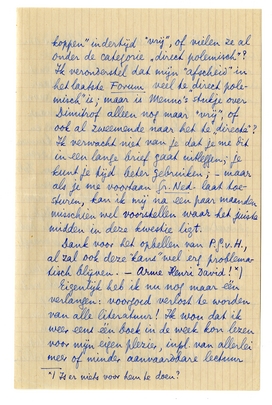 koppen" indertijd "vrij", of vielen ze al
onder de categorie "direct polemisch"?
Ik veronderstel dat mijn "afscheid" in
het laatste Forum veel te "direct pole-
misch" is; maar is Menno's stukje over
Dimitrof alleen nog maar "vrij", of
ook al zweemende naar het te "directe"?
Ik verwacht niet van je dat je me dit
in een lange brief gaat uitleggen; je
kunt je tijd beter gebruiken; – maar
als je me voortaan Gr. Ned. laat toe-
sturen, kan ik mij na een paar maanden
misschien wel voorstellen waar het juiste
midden in deze kwestie ligt.
Dank voor het opbellen van P.&v.H.,
al zal ook deze "kans" wel erg problema-
tisch blijven. – Arme Henri David! *)
Eigenlijk heb ik nu nog maar één
verlangen: voorgoed verlost te worden
van alle literatuur! Ik wou dat ik
weer eens één boek in de week kon lezen
voor mijn eigen plezier, inpl. van allerlei
meer of minder aanvaardbare lectuur
*) Is er niets voor hem te doen?